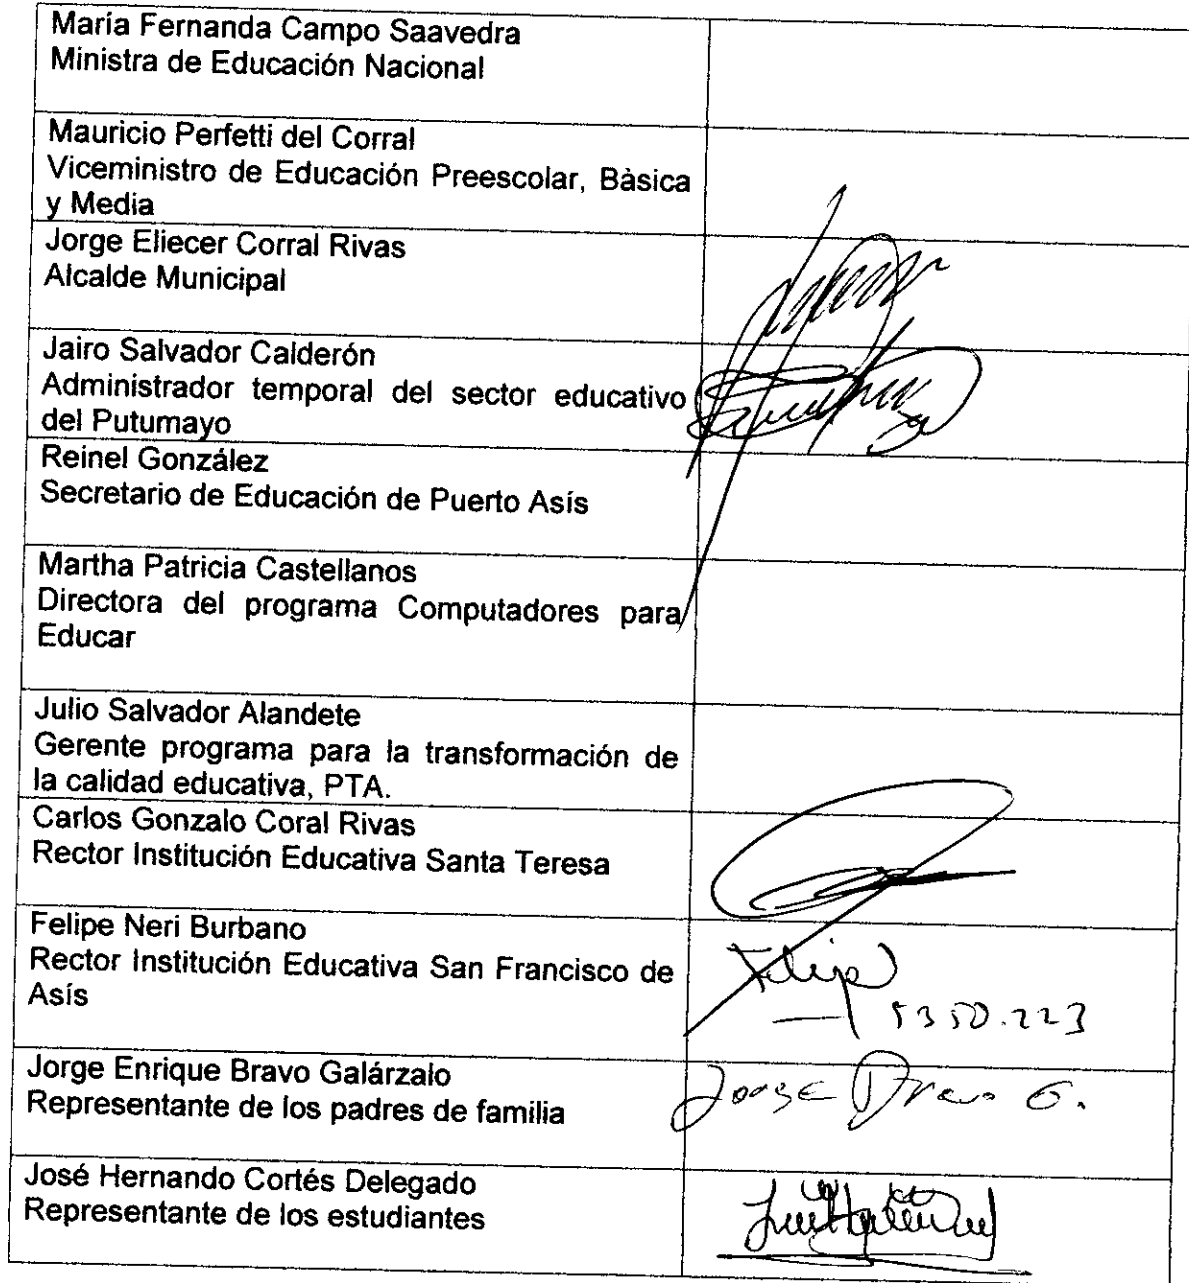 María Fernanda Campo Saavedra
Ministra de Educación Nacional
Mauricio Perfetti del Corral
Viceministro de Educación Preescolar, Bàsica
y Media
Jorge Eliecer Corral Rivas
Alcalde Municipal
Jairo Salvador Calderón
Administrador temporal del sector educativo
del Putumayo
Reinel González
Secretario de Educación de Puerto Asís
Martha Patricia Castellanos
Directora del programa Computadores para
Educar
Julio Salvador Alandete
Gerente programa para la transformación de
la calidad educativa, PTA.
Carlos Gonzalo Coral Rivas
Rector Institución Educativa Santa Teresa
Felipe Neri Burbano
Rector Institución Educativa San Francisco de
Asís
Felipe
5350.223
Jorge Enrique Bravo Galárzalo
Representante de los padres de familia
Jorge Bravo G.
José Hernando Cortés Delegado
Representante de los estudiantes